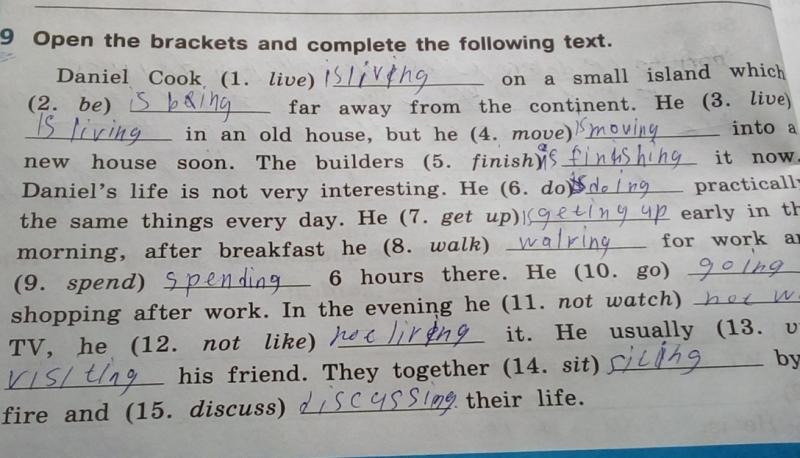 9 Open the brackets and complete the following text.
Daniel Cook (1. live) is living on a small island which
(2. be) is being far away from the continent. He (3. live)
is living in an old house, but he (4. move) is moving into a
new house soon. The builders (5. finish) is finishing it now.
Daniel's life is not very interesting. He (6. do) is doing practically
the same things every day. He (7. get up) is geting up early in th
morning, after breakfast he (8. walk) walking for work a
(9. spend) spending 6 hours there. He (10. go) going
shopping after work. In the evening he (11. not watch) not w
TV, he (12. not like) not living it. He usually (13. v
visiting his friend. They together (14. sit) siting by
fire and (15. discuss) discussing their life.